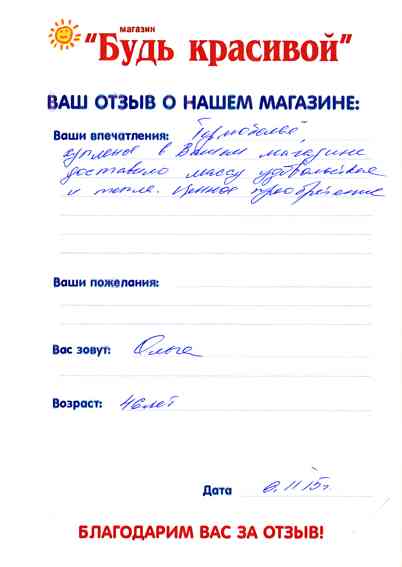 магазин
"Будь красивой"
ВАШ ОТЗЫВ О НАШЕМ МАГАЗИНЕ:
Ваши впечатления: Термобельё,
купленое в Вашем магазине
доставило массу удовольствия
и тепла. Ценное приобретение
Ваши пожелания:
Вас зовут: Ольга
Возраст: 46 лет
Дата 6.11 15г.
БЛАГОДАРИМ ВАС ЗА ОТЗЫВ!